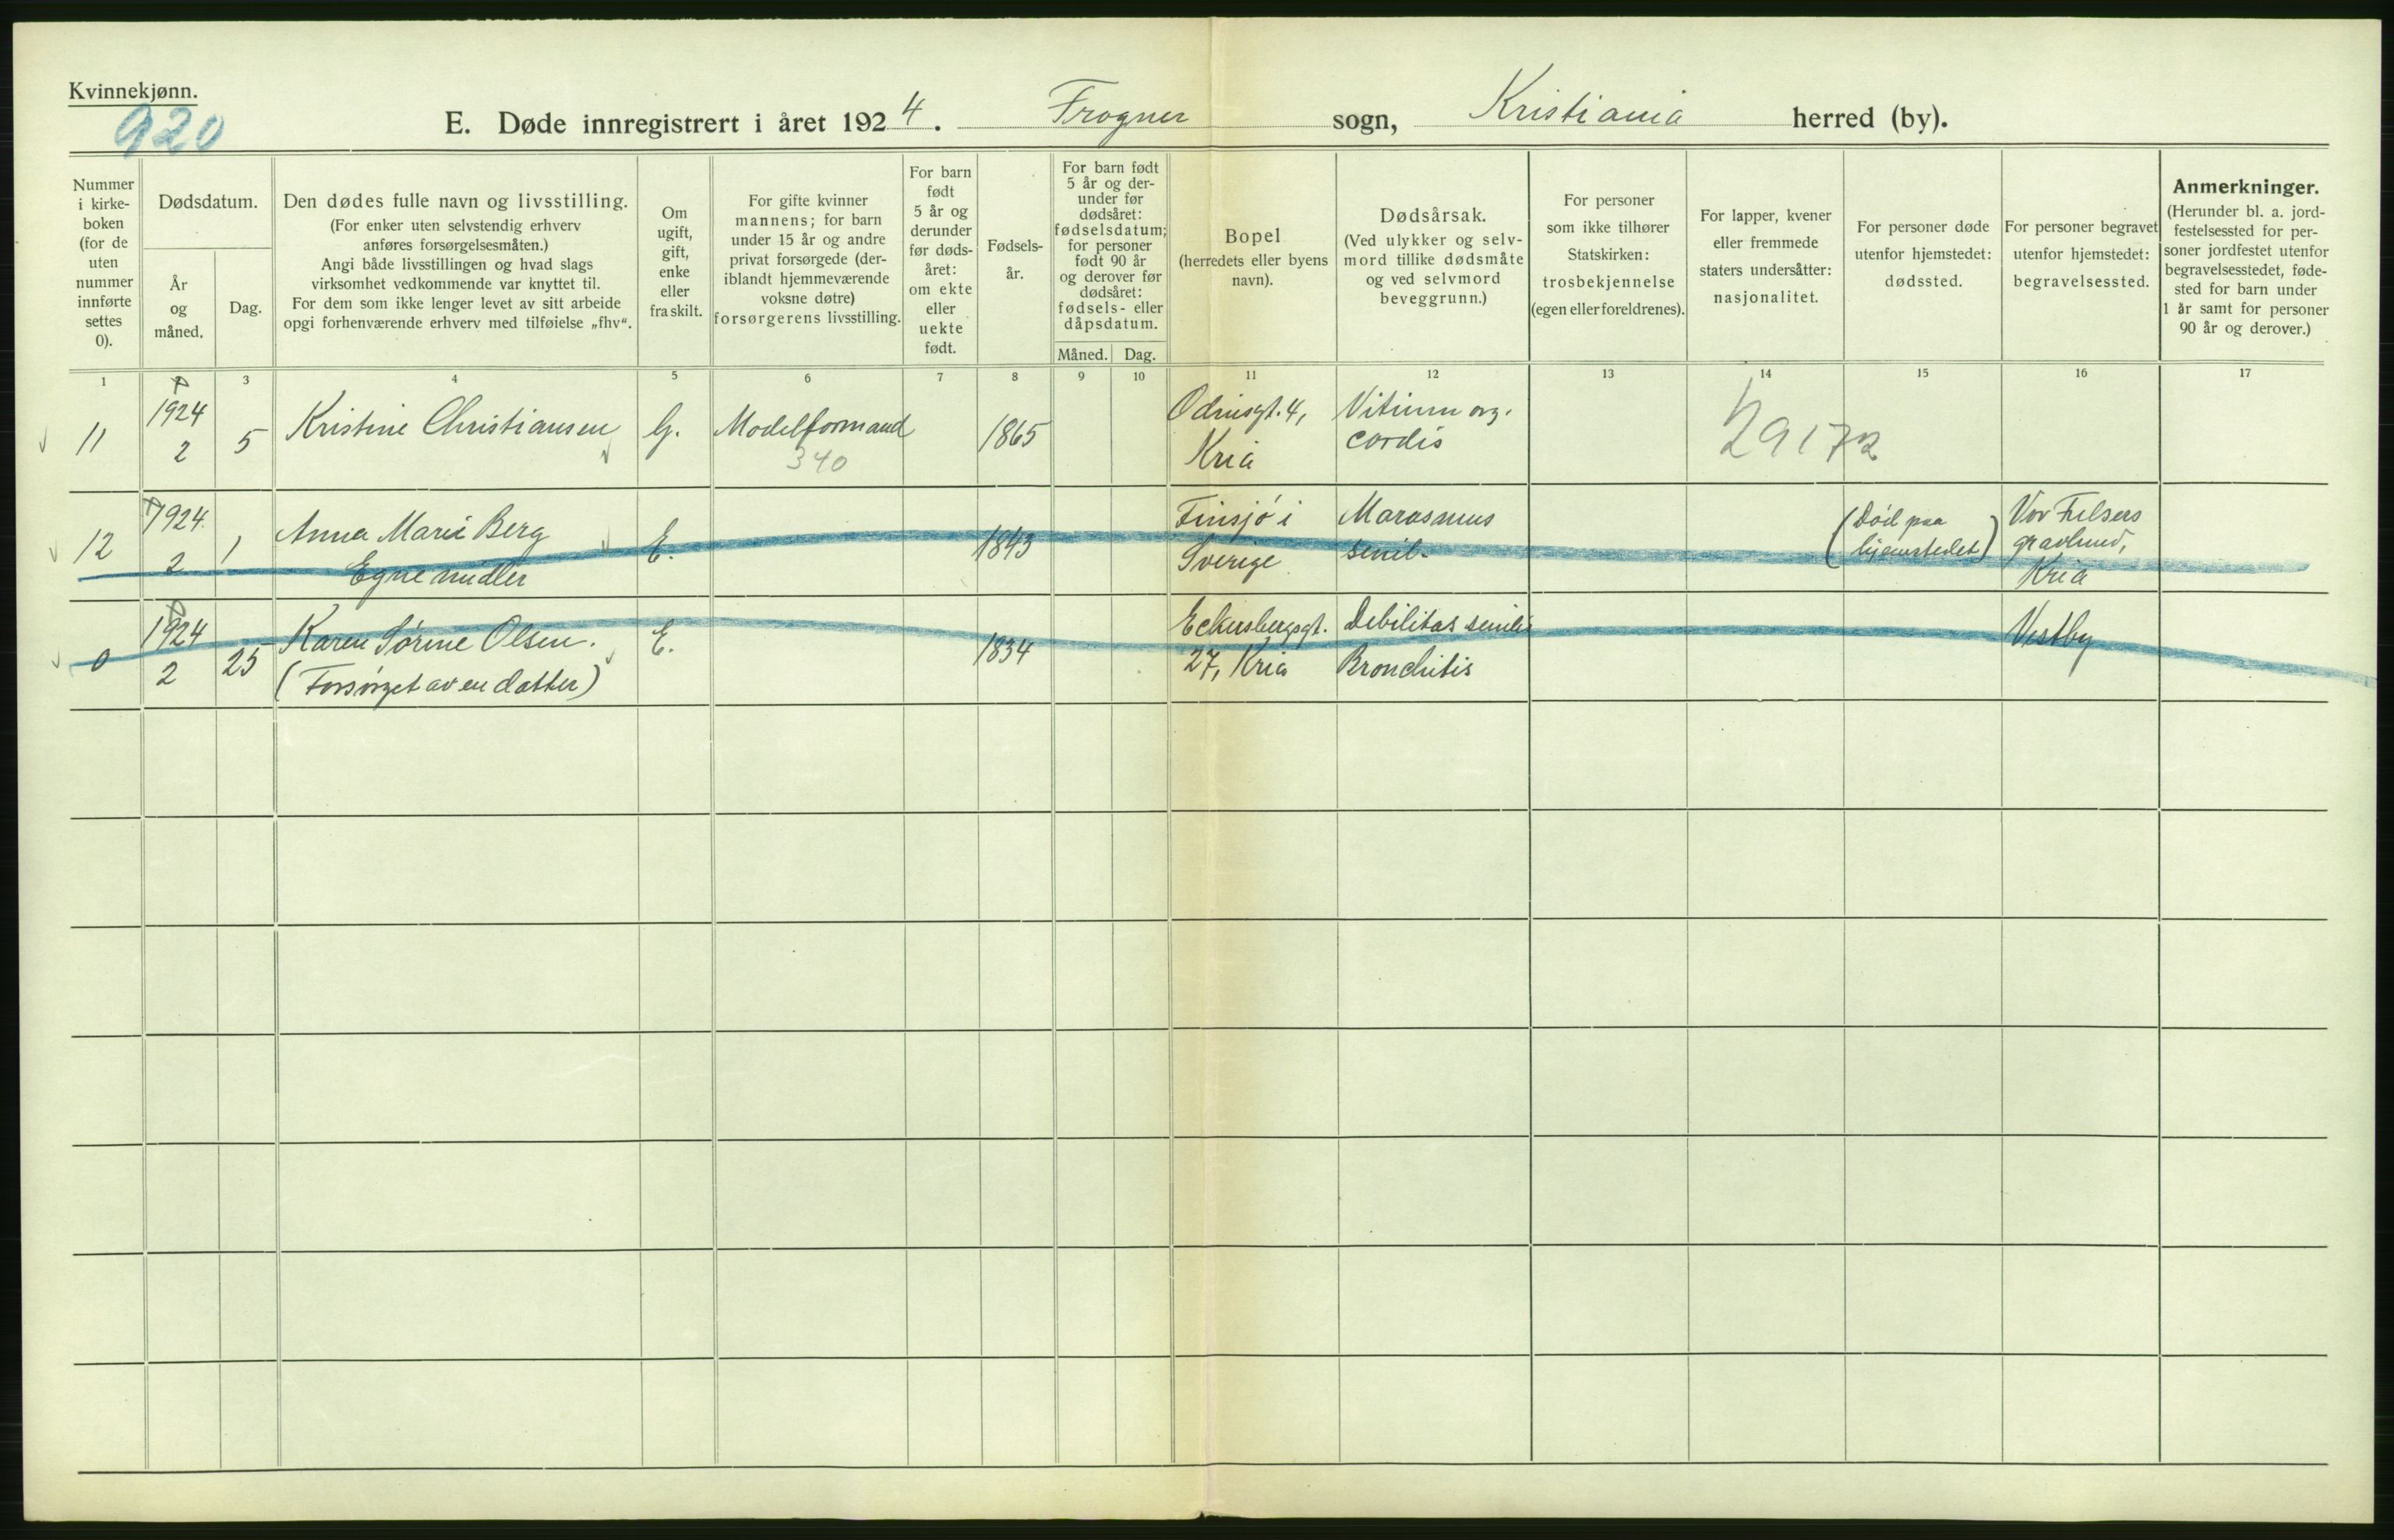 Kvinnekjønn.
920
E. Døde innregistrert i året 1924. Frogner sogn, Kristiania herred (by).
Nummer
i kirke-
boken
(for de
uten
nummer
innførte
settes
0).
Dødsdatum.
År
og
måned.
Dag.
Den dødes fulle navn og livsstilling.
(For enker uten selvstendig erhverv
anføres forsørgelsesmåten.)
Angi både livsstillingen og hvad slags
virksomhet vedkommende var knyttet til.
For dem som ikke lenger levet av sitt arbeide
opgi forhenværende erhverv med tilføielse „fhv“.
Om
ugift,
gift,
enke
eller
fraskilt.
For gifte kvinner
mannens; for barn
under 15 år og andre
privat forsørgede (der-
iblandt hjemmeværende
voksne døtre)
forsørgerens livsstilling.
For barn
født
5 år og
derunder
før døds-
året:
om ekte
eller
uekte
født.
Fødsels-
år.
For barn født
5 år og der-
under før
dødsåret:
fødselsdatum;
for personer
født 90 år
og derover før
dødsåret:
fødsels- eller
dåpsdatum.
Måned. Dag.
Bopel
(herredets eller byens
navn).
Dødsårsak.
(Ved ulykker og selv-
mord tillike dødsmåte
og ved selvmord
beveggrunn.)
For personer
som ikke tilhører
Statskirken:
trosbekjennelse
(egen eller foreldrenes).
For lapper, kvener
eller fremmede
staters undersåtter:
nasjonalitet.
For personer døde
utenfor hjemstedet:
dødssted.
For personer begravet
utenfor hjemstedet:
begravelsessted.
Anmerkninger.
(Herunder bl. a. jord-
festelsessted for per-
soner jordfestet utenfor
begravelsesstedet, føde-
sted for barn under
1 år samt for personer
90 år og derover.)
1 3 4 5 6 7 8 9 10 11 12 13 14 15 16 17
11
1924
2
5
Kristine Christiansen
G.
Modelformand
340
1865
Odinsgt. 4,
Kria
Vitium org.
cordis
29172
12
1924
2
1
Anna Marie Berg
Egne midler
E.
1843
Finsjö i
Sverige
Marasmus
senil.
(Död paa
hjemstedet)
Vor Frelsers
gravlund,
Kria
0
1924
2
25
Karen Sørine Olsen.
(Forsørget av en datter)
E.
1834
Eckersbergsgt.
27, Kria
Debilitas senilis
Bronchitis
Vestby